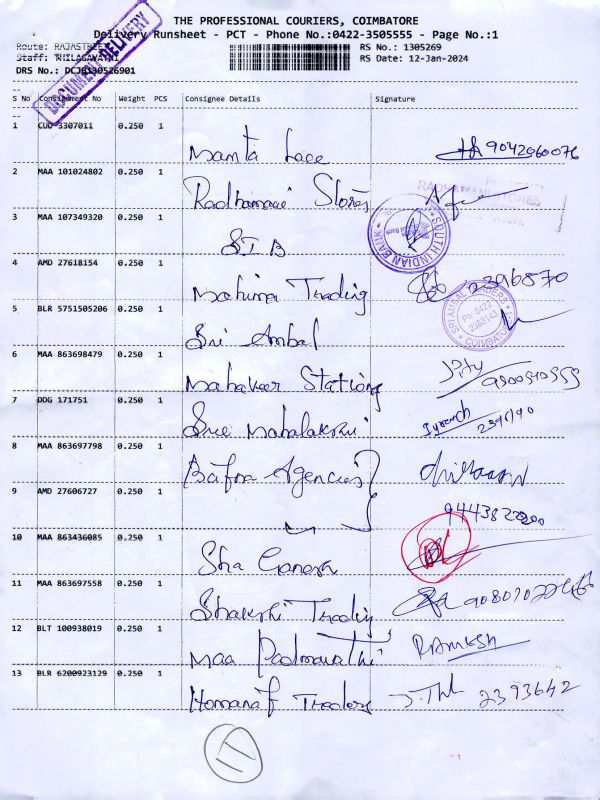 THE PROFESSIONAL COURIERS, COIMBATORE
Delivery Runsheet - PCT - Phone No.:0422-3505555 - Page No.:1
Route: RAJASTREET RS No.: 1305269
Staff: THILAGAVATHI RS Date: 12-Jan-2024
DRS No.: DCJB130526901
DOCUMENT DELIVERY
S No Consignment No Weight PCS Consignee Details Signature
1 CUO 3307011 0.250 1
Mamta Lace 9042060076
2 MAA 101024802 0.250 1
Radhamani Stores
3 MAA 107349320 0.250 1
SIB
SOUTH INDIAN BANK
4 AMD 27618154 0.250 1
Mahima Trading 2396870
5 BLR 5751505206 0.250 1
Sri Ambal
Ph: 0422-
COIMBATORE
6 MAA 863698479 0.250 1
Mahaveer Stationg
7 DDG 171751 0.250 1
Sree Mahalakshmi
8 MAA 863697798 0.250 1
Bafna Agencies
9 AMD 27606727 0.250 1
10 MAA 863436085 0.250 1
Sha Ganesh
11 MAA 863697558 0.250 1
Shakshi Trading
12 BLT 100938019 0.250 1
Maa Padmavathi RAMESH
13 BLR 6200923129 0.250 1
Homaraf Traders 2393642
11